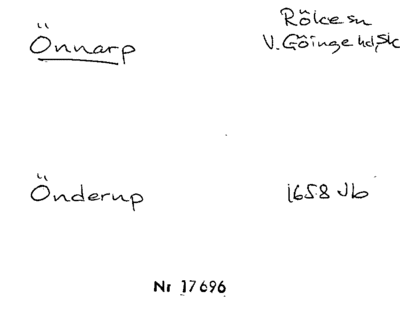 Önnarp
Rölce sn
V. Göinge hd, Sk
Önderup
1658 Jb
Nr 17696